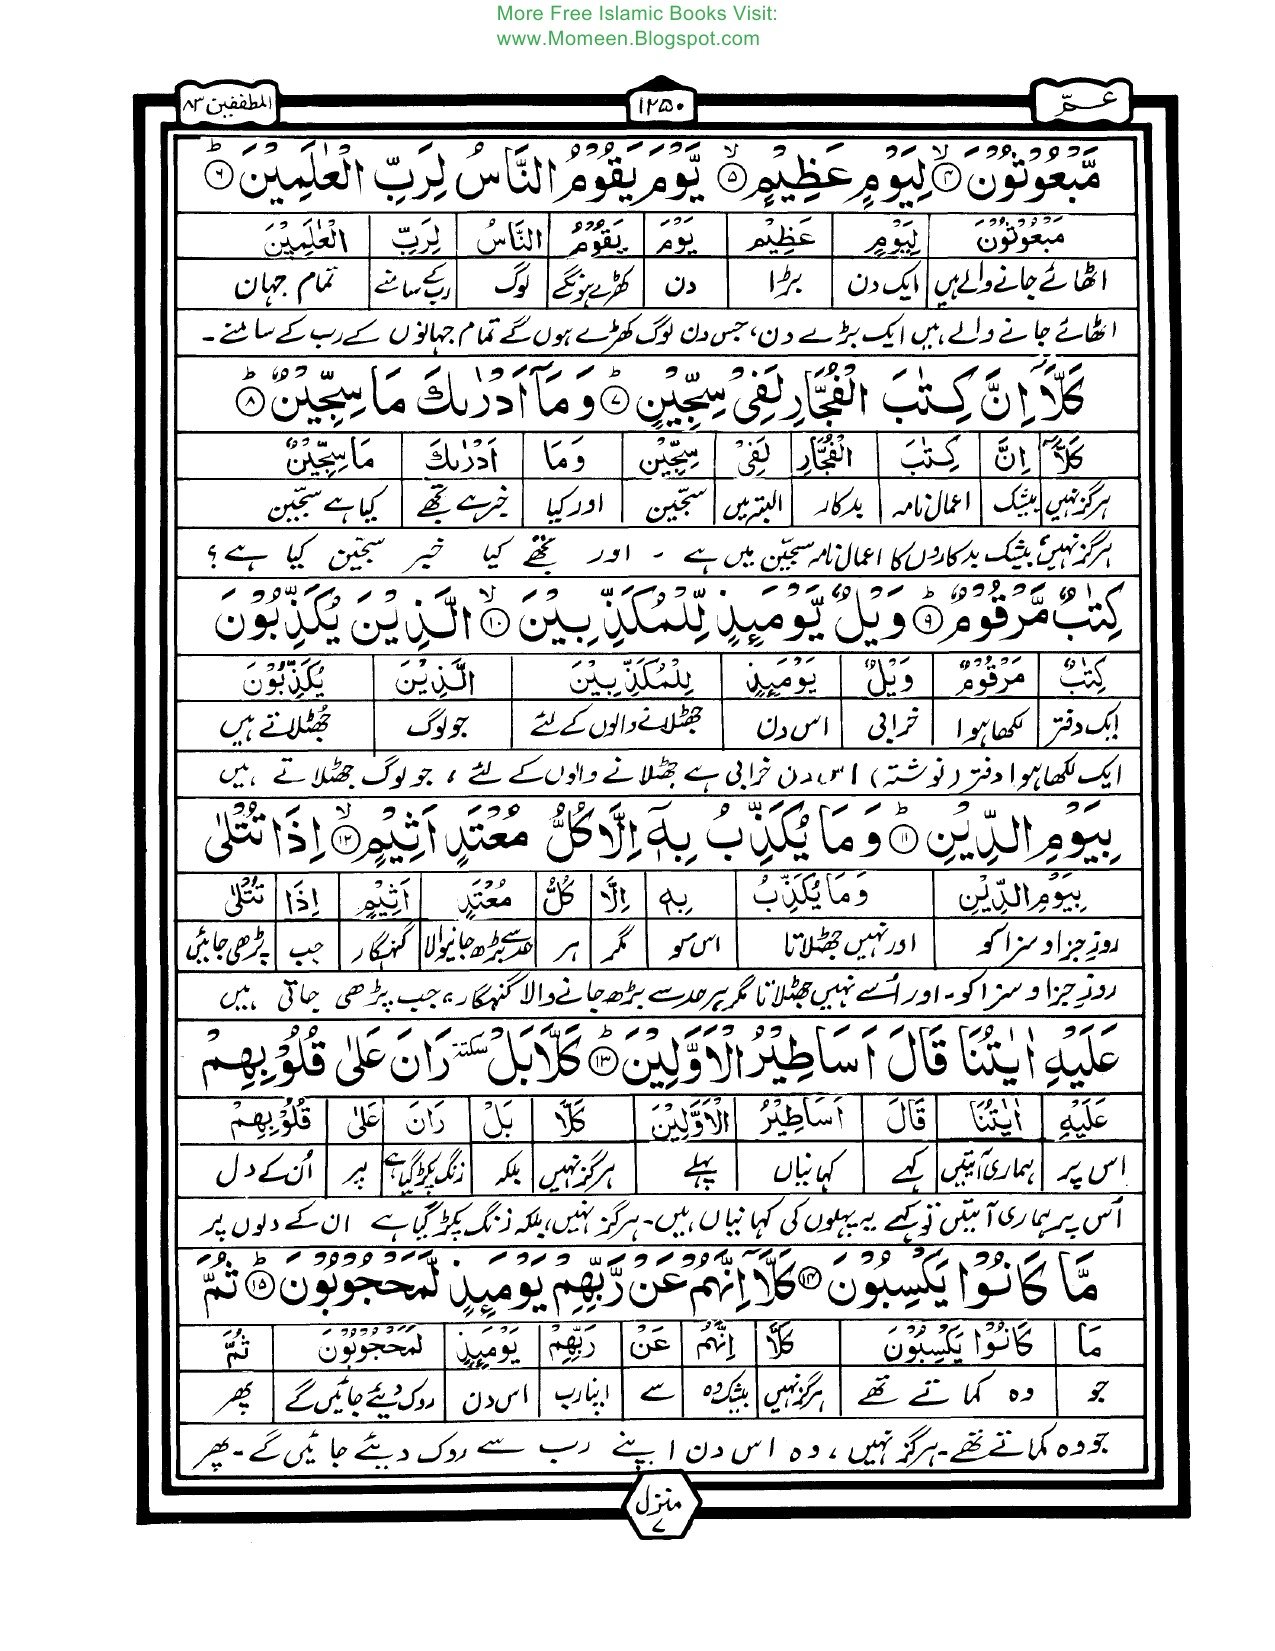 More Free Islamic Books Visit:
www.Momeen.Blogspot.com
عــمّ ١٢٥٠ المطففين ٨٣
مَّبْعُوْثُوْنَ ۙ﴿۴﴾ لِيَوْمٍ عَظِيْمٍ ۙ﴿۵﴾ يَّوْمَ يَقُوْمُ النَّاسُ لِرَبِّ الْعٰلَمِيْنَ ؕ﴿۶﴾
مَبْعُوْثُوْنَ لِيَوْمٍ عَظِيْمٍ يَوْمَ يَقُوْمُ النَّاسُ لِرَبِّ الْعٰلَمِيْنَ
اٹھائے جانے والے ہیں ایک دن بڑا دن کھڑے ہونگے لوگ رب کے سامنے تمام جہان
اٹھائے جانے والے ہیں ایک بڑے دن، جس دن لوگ کھڑے ہوں گے تمام جہانوں کے رب کے سامنے۔
كَلَّاۤ اِنَّ كِتٰبَ الْفُجَّارِ لَفِيْ سِجِّيْنٍ ؕ﴿۷﴾ وَمَاۤ اَدْرٰىكَ مَا سِجِّيْنٌ ؕ﴿۸﴾
كَلَّاۤ اِنَّ كِتٰبَ الْفُجَّارِ لَفِيْ سِجِّيْنٍ وَمَا اَدْرٰىكَ مَا سِجِّيْنٌ
ہرگز نہیں بیشک اعمال نامہ بدکار البتہ میں سجّین اور کیا خبر ہے تجھے کیا ہے سجّین
ہرگز نہیں بیشک بدکاروں کا اعمال نامہ سجّین میں ہے ۔ اور تجھے کیا خبر سجّین کیا ہے؟
كِتٰبٌ مَّرْقُوْمٌ ؕ﴿۹﴾ وَيْلٌ يَّوْمَئِذٍ لِّلْمُكَذِّبِيْنَ ۙ﴿۱۰﴾ الَّذِيْنَ يُكَذِّبُوْنَ
كِتٰبٌ مَرْقُوْمٌ وَيْلٌ يَوْمَئِذٍ لِلْمُكَذِّبِيْنَ الَّذِيْنَ يُكَذِّبُوْنَ
ایک دفتر لکھا ہوا خرابی اس دن جھٹلانے والوں کے لئے جو لوگ جھٹلاتے ہیں
ایک لکھا ہوا دفتر (نوشتہ) اس دن خرابی ہے جھٹلانے والوں کے لئے، جو لوگ جھٹلاتے ہیں
بِيَوْمِ الدِّيْنِ ؕ﴿۱۱﴾ وَمَا يُكَذِّبُ بِهٖۤ اِلَّا كُلُّ مُعْتَدٍ اَثِيْمٍ ۙ﴿۱۲﴾ اِذَا تُتْلٰى
بِيَوْمِ الدِّيْنِ وَمَا يُكَذِّبُ بِهٖ اِلَّا كُلُّ مُعْتَدٍ اَثِيْمٍ اِذَا تُتْلٰى
روزِ جزا و سزا کو اور نہیں جھٹلاتا اس کو مگر ہر حد سے بڑھ جانیوالا گنہگار جب پڑھی جائیں
روزِ جزا و سزا کو۔ اور اُسے نہیں جھٹلاتا مگر ہر حد سے بڑھ جانے والا گنہگار، جب پڑھی جاتی ہیں
عَلَيْهِ اٰيٰتُنَا قَالَ اَسَاطِيْرُ الْاَوَّلِيْنَ ؕ﴿۱۳﴾ كَلَّا بَلْ سكتة رَانَ عَلٰى قُلُوْبِهِمْ
عَلَيْهِ اٰيٰتُنَا قَالَ اَسَاطِيْرُ الْاَوَّلِيْنَ كَلَّا بَلْ رَانَ عَلٰى قُلُوْبِهِمْ
اس پر ہماری آیتیں کہے کہانیاں پہلے ہرگز نہیں بلکہ زنگ پکڑ گیا ہے پر اُن کے دل
اُس پر ہماری آیتیں تو کہے یہ پہلوں کی کہانیاں ہیں۔ ہرگز نہیں، بلکہ زنگ پکڑ گیا ہے ان کے دلوں پر
مَّا كَانُوْا يَكْسِبُوْنَ ﴿۱۴﴾ كَلَّاۤ اِنَّهُمْ عَنْ رَّبِّهِمْ يَوْمَئِذٍ لَّمَحْجُوْبُوْنَ ؕ﴿۱۵﴾ ثُمَّ
مَا كَانُوْا يَكْسِبُوْنَ كَلَّا اِنَّهُمْ عَنْ رَبِّهِمْ يَوْمَئِذٍ لَمَحْجُوْبُوْنَ ثُمَّ
جو وہ کماتے تھے ہرگز نہیں بیشک وہ سے اپنا رب اس دن روک دیئے جائیں گے پھر
جو وہ کماتے تھے۔ ہرگز نہیں، وہ اس دن اپنے رب سے روک دیئے جائیں گے۔ پھر
منزل
۷